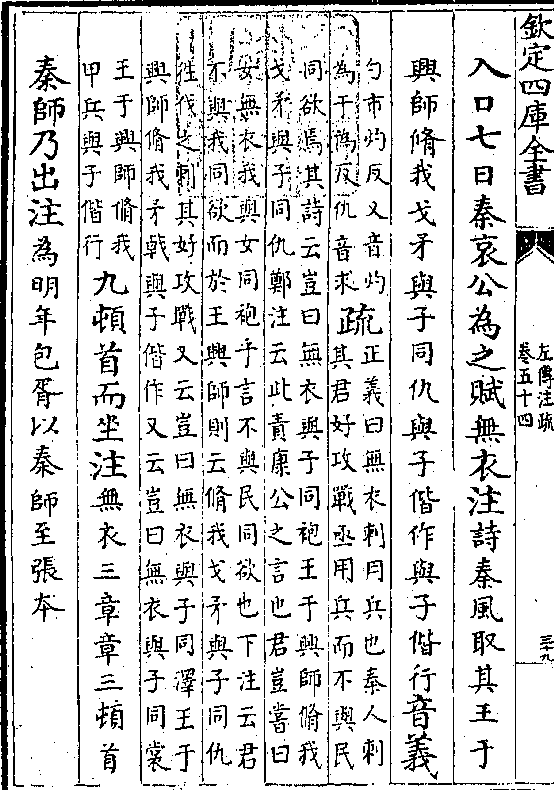 欽定四庫全書
左傳注疏
卷五十四
三九
入口七日秦哀公為之賦無衣注詩秦風取其王于
興師脩我戈矛與子同仇與子偕作與子偕行音義
勺市灼反又音灼
為于偽反仇音求
疏
正義曰無衣刺用兵也秦人刺
其君好攻戰亟用兵而不與民
同欲焉其詩云豈曰無衣與子同袍王于興師脩我
戈矛與子同仇鄭注云此責康公之言也君豈嘗曰
女無衣我與女同袍乎言不與民同欲也下注云君
不與我同欲而於王興師則云脩我戈矛與子同仇
往伐之刺其好攻戰又云豈曰無衣與子同澤王于
興師脩我矛戟與子偕作又云豈曰無衣與子同裳
王于興師脩我
甲兵與子偕行
九頓首而坐注無衣三章章三頓首
秦師乃出注為明年包胥以秦師至張本